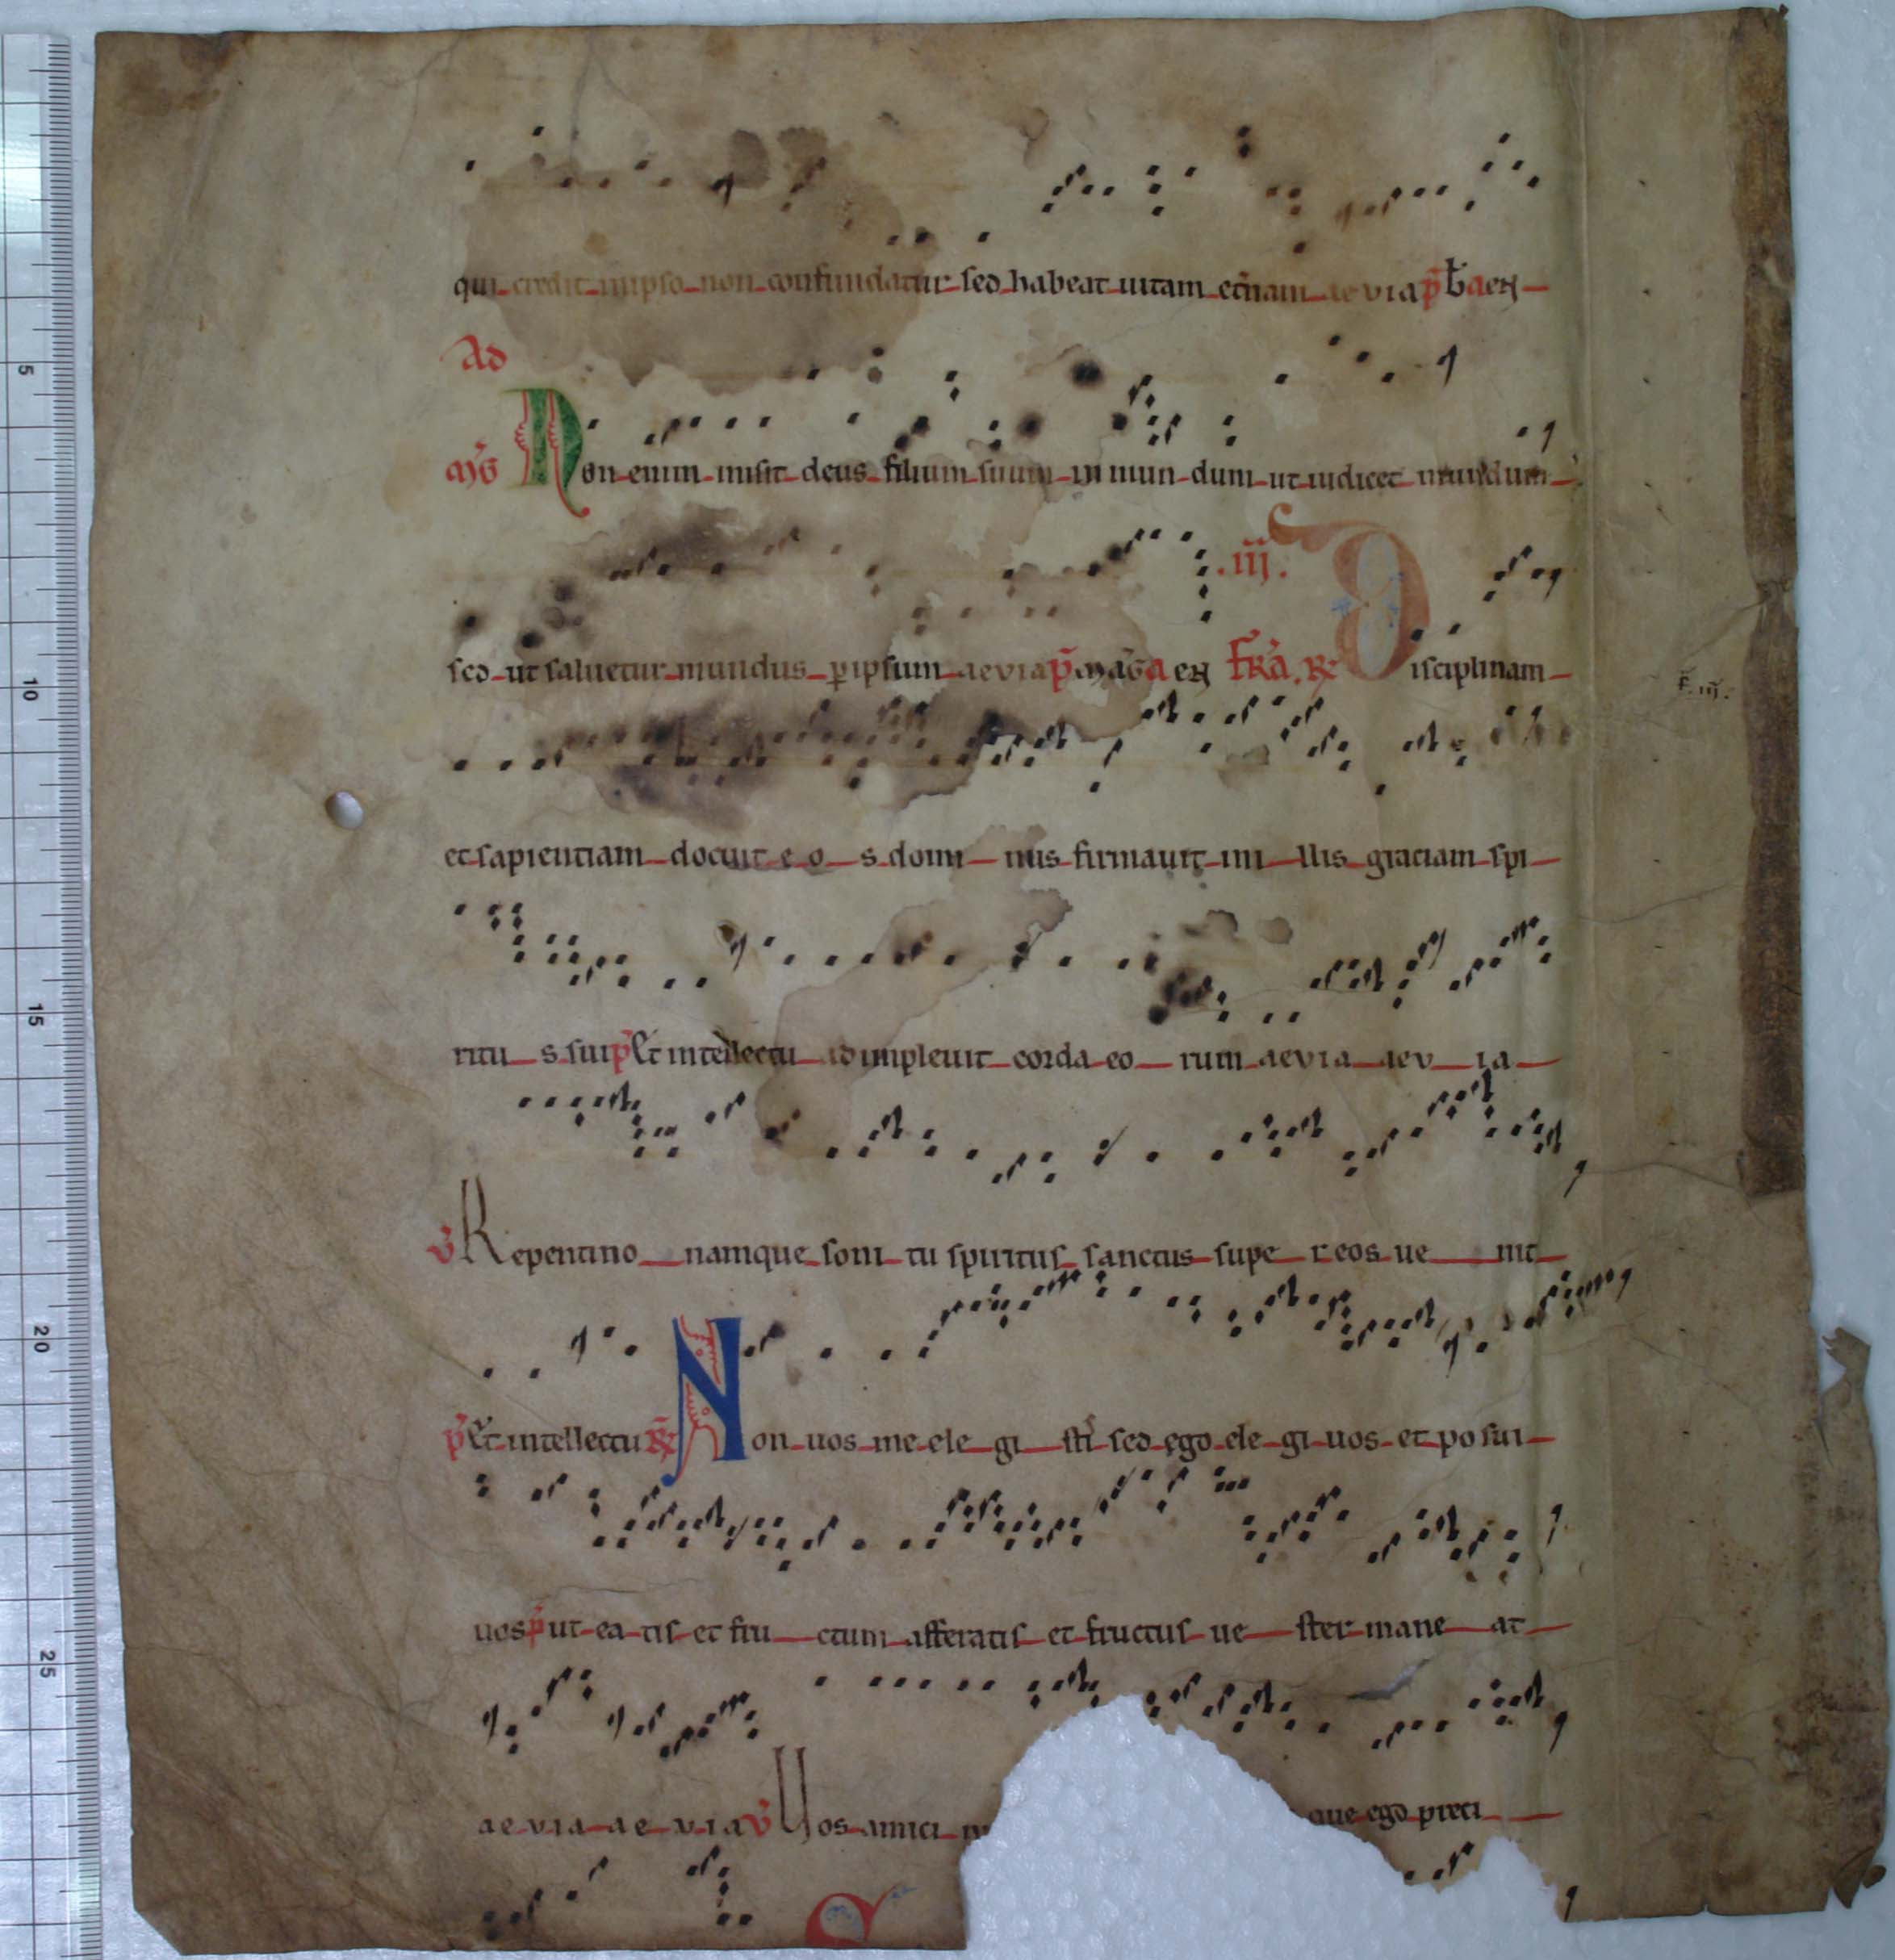 qui credit inipso non confundatur sed habeat uitam et̃nam aevia p̃ b̃a en
Ad
mg̃ Non enim misit deus filium suum in mun dum ut iudicet mundum
sed ut saluetur mundus ꝑipsum aevia p̃ mãg a en fr̃a. ℟ Disciplinam
.iij.
F. iij.
et sapientiam docuit e o s domi nus firmauit in illis graciam spi
ritu s sui p̃ Et intellectu adimpleuit corda eo rum aevia aev ia
ṽ Repentino namque soni tu spiritus sanctus supe r eos ue nit
p̃ Et intellectu ℟ Non uos me ele gi sti sed ego ele gi uos et posui
uos p̃ ut ea tis et fru ctum afferatis et fructus ue ster mane at
ae via ae via ṽ Uos amici que ego preci
5
10
15
20
25